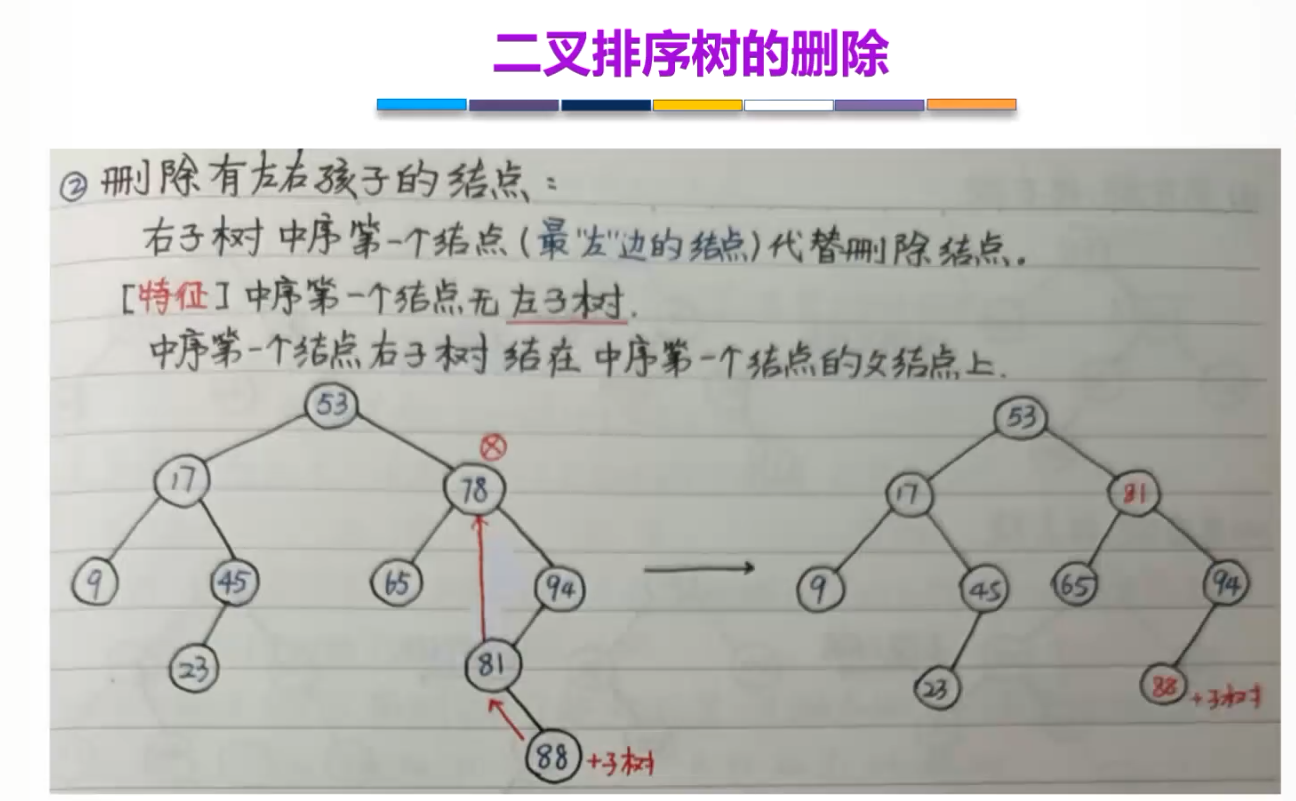 二叉排序树的删除
②删除有左右孩子的结点：
右子树中序第一个结点(最"左"边的结点)代替删除结点。
[特征]中序第一个结点无左子树.
中序第一个结点右子树结在中序第一个结点的父结点上.
53
17
78
9
45
65
94
23
81
88
+子树
53
17
81
9
45
65
94
23
88
+子树